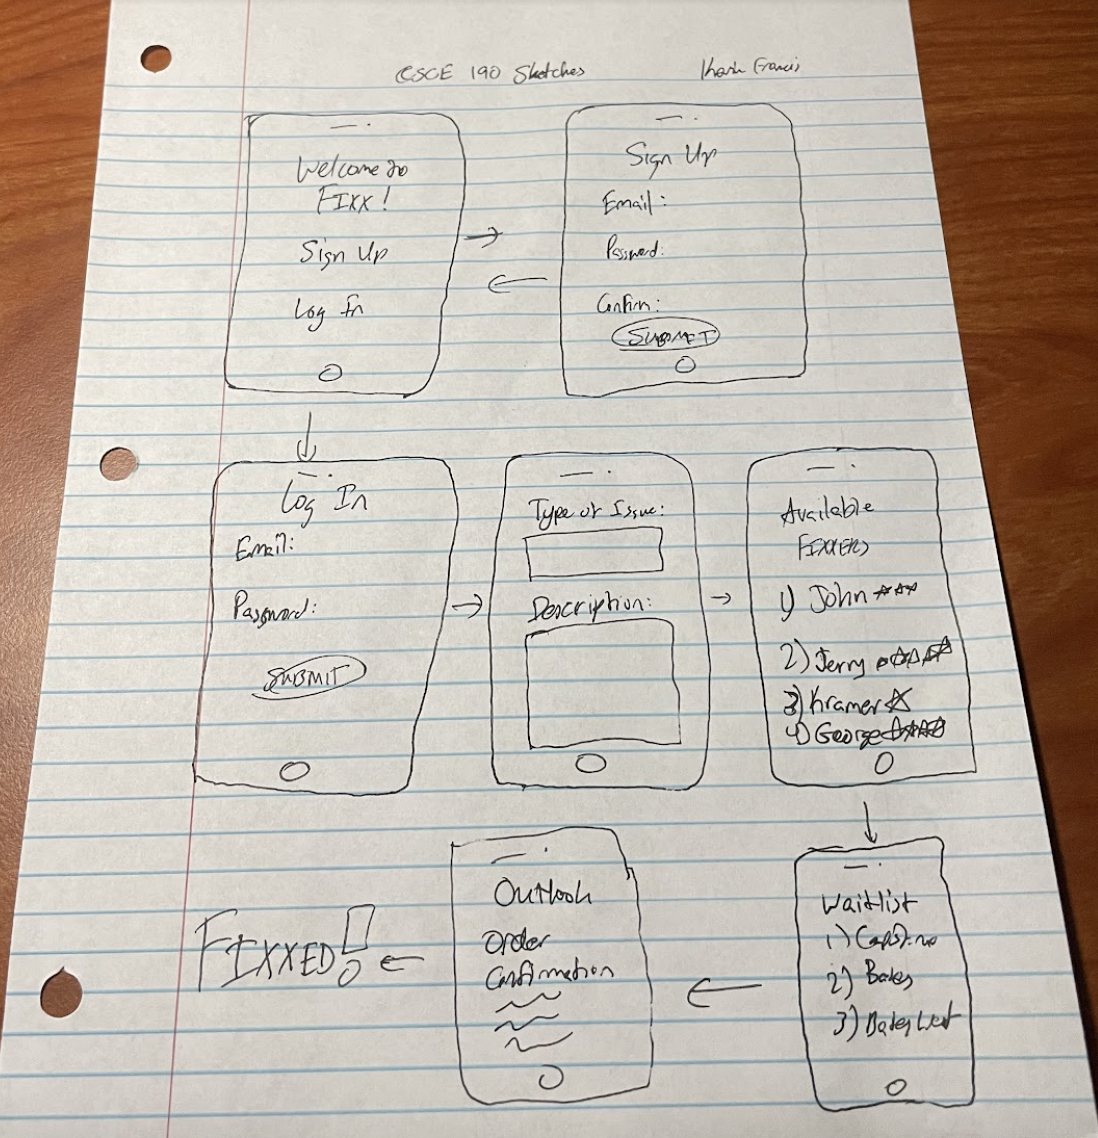 CSCE 190 Sketches
Francis
Welcome to
FIXX!
Sign Up
Log In
Sign Up
Email:
Password:
Confirm:
SUBMIT
Log In
Email:
Password:
SUBMIT
Type of Issue:
Description:
Available
FIXXERS
1) John ☆☆☆
2) Jerry ☆☆☆☆☆
3) Kramer ☆
4) George ☆☆☆☆
Waitlist
1) Capstone
2) Bates
3) Bates West
Outlook
Order
Confirmation
FIXXED!